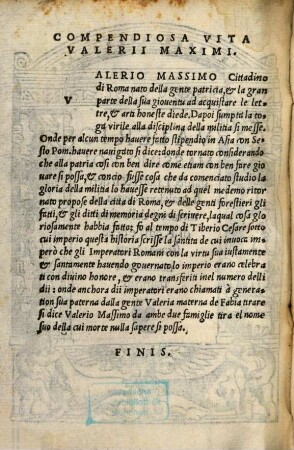 COMPENDIOSA VITA
VALERII MAXIMI.
VALERIO MASSIMO Cittadino
di Roma nato della gente patricia, & la gran
parte della sua giouentu ad acquistare le let
tre, & arti honeste diede. Dapoi sumpta la to
ga virile alla disciplina della militia si messe.
Onde per alcun tempo hauere fatto stipendio in Asia con Se
sto Pom. hauere nauigato si dice: donde tornato considerando
che alla patria cosi con ben dire come etiam con ben fare gio
uare si possa, & concio fusse cosa che da comenciato studio la
gloria della militia lo hauesse retenuto ad quel medemo ritor
nato propose della citta di Roma, & delle genti forestieri gli
fatti, & gli ditti di memoria degni di scriuere, laqual cosa glo
riosamente habbia fatto, fo al tempo di Tiberio Cesare sotto
cui imperio questa historia scrisse la santita de cui inuoca im
però che gli Imperatori Romani con la virtu sua iustamente
& santamente hauendo gouernato lo imperio erano celebra
ti con diuino honore, & erano transferiti inel numero delli
dii: onde anchora dii imperatori erano chiamati à genera
tion sua paterna dalla gente Valeria materna de Fabia tirare
si dice Valerio Massimo da ambe due famiglie tira el nome
suo della cui morte nulla sapere si possa.
FINIS.